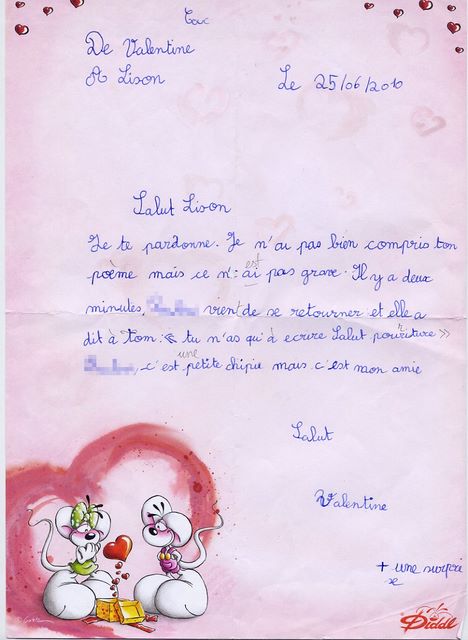 De Valentine
A Lison
Le 25/06/2010
Salut Lison
Je te pardonne. Je n'ai pas bien compris ton
est
poème mais ce n'ai pas grave. Il y a deux
minutes, vient de se retourner et elle a
dit à Tom : « tu n'as qu'à ecrire Salut pourriture »
une
, c'est petite chipie mais c'est mon amie
Salut
Valentine
+ une surprise
Diddl